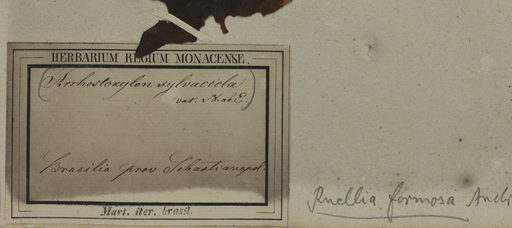 HERBARIUM REGIUM MONACENSE.
(Arrhostoxylon sylvaccola
var. N. ab. E.)
Brasilia prov. Sebastianopol.
Mart. iter. brasil.
Ruellia formosa Andr